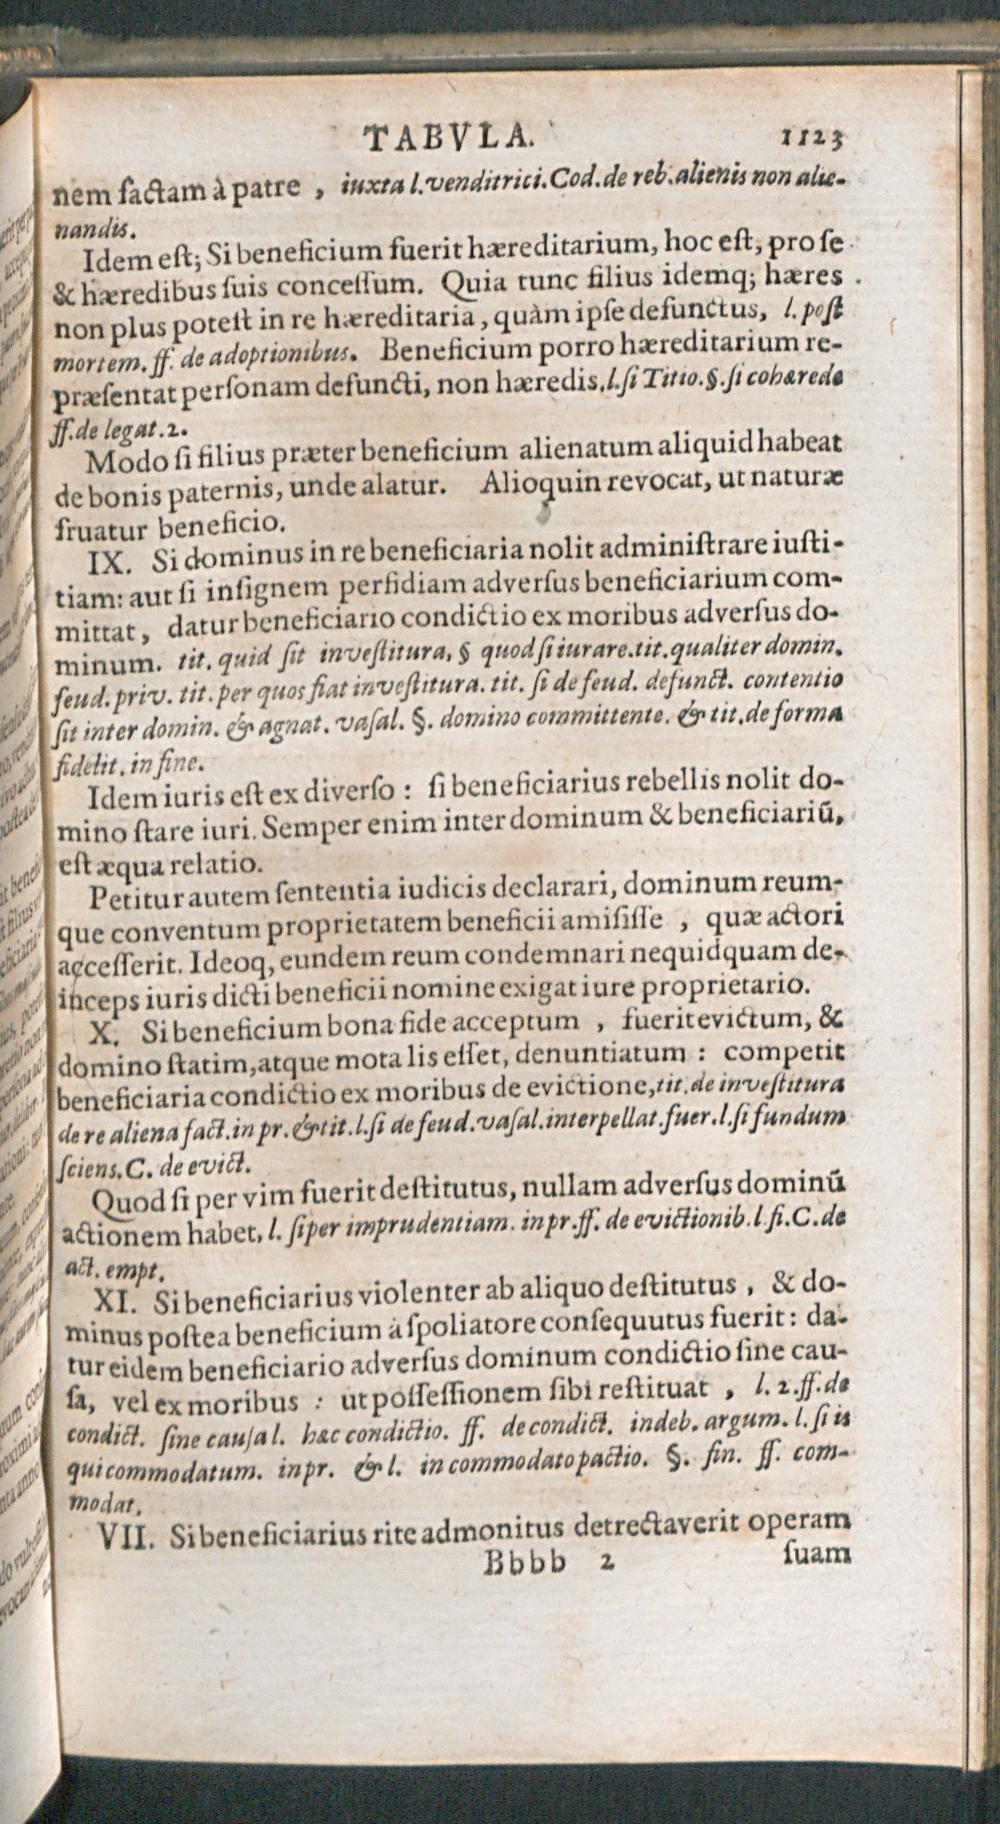 TABVLA. 1123
nem factam à patre , iuxta l. venditrici. Cod. de reb. alienis non alie-
nandis.
Idem eſt; Si beneficium fuerit hæreditarium, hoc eſt, pro ſe
& hæredibus ſuis conceſſum. Quia tunc filius idemq; hæres
non plus poteſt in re hæreditaria, quàm ipſe defunctus, l. poſt
mortem. ff. de adoptionibus. Beneficium porro hæreditarium re-
præſentat perſonam defuncti, non hæredis. l. ſi Titio. §. ſi cohærede
ff. de legat. 2.
Modo ſi filius præter beneficium alienatum aliquid habeat
de bonis paternis, unde alatur. Alioquin revocat, ut naturæ
fruatur beneficio.
IX. Si dominus in re beneficiaria nolit adminiſtrare iuſti-
tiam: aut ſi inſignem perfidiam adverſus beneficiarium com-
mittat, datur beneficiario condictio ex moribus adverſus do-
minum. tit. quid ſit inveſtitura, § quod ſi iurare. tit. qualiter domin.
feud. priv. tit. per quos fiat inveſtitura. tit. ſi de feud. defunct. contentio
ſit inter domin. & agnat. vaſal. §. domino committente. & tit. de forma
fidelit. in fine.
Idem iuris eſt ex diverſo : ſi beneficiarius rebellis nolit do-
mino ſtare iuri. Semper enim inter dominum & beneficiariū,
eſt æqua relatio.
Petitur autem ſententia iudicis declarari, dominum reum-
que conventum proprietatem beneficii amiſiſſe , quæ actori
acceſſerit. Ideoq, eundem reum condemnari ne quidquam de-
inceps iuris dicti beneficii nomine exigat iure proprietario.
X. Si beneficium bona fide acceptum , fuerit evictum, &
domino ſtatim, atque mota lis eſſet, denuntiatum : competit
beneficiaria condictio ex moribus de evictione, tit. de inveſtitura
de re aliena fact. in pr. & tit. l. ſi de feud. vaſal. interpellat. fuer. l. ſi fundum
ſciens. C. de evict.
Quod ſi per vim fuerit deſtitutus, nullam adverſus dominū
actionem habet, l. ſi per imprudentiam. in pr. ff. de evictionib. l. ſi. C. de
act. empt.
XI. Si beneficiarius violenter ab aliquo deſtitutus , & do-
minus poſtea beneficium à ſpoliatore conſequutus fuerit : da-
tur eidem beneficiario adverſus dominum condictio ſine cau-
ſa, vel ex moribus : ut poſſeſſionem ſibi reſtituat , l. 2. ff. de
condict. ſine cauſa l. hæc condictio. ff. de condict. indeb. argum. l. ſi is
qui commodatum. in pr. & l. in commodato pactio. §. fin. ff. com-
modat.
VII. Si beneficiarius rite admonitus detrectaverit operam
Bbbb 2 ſuam